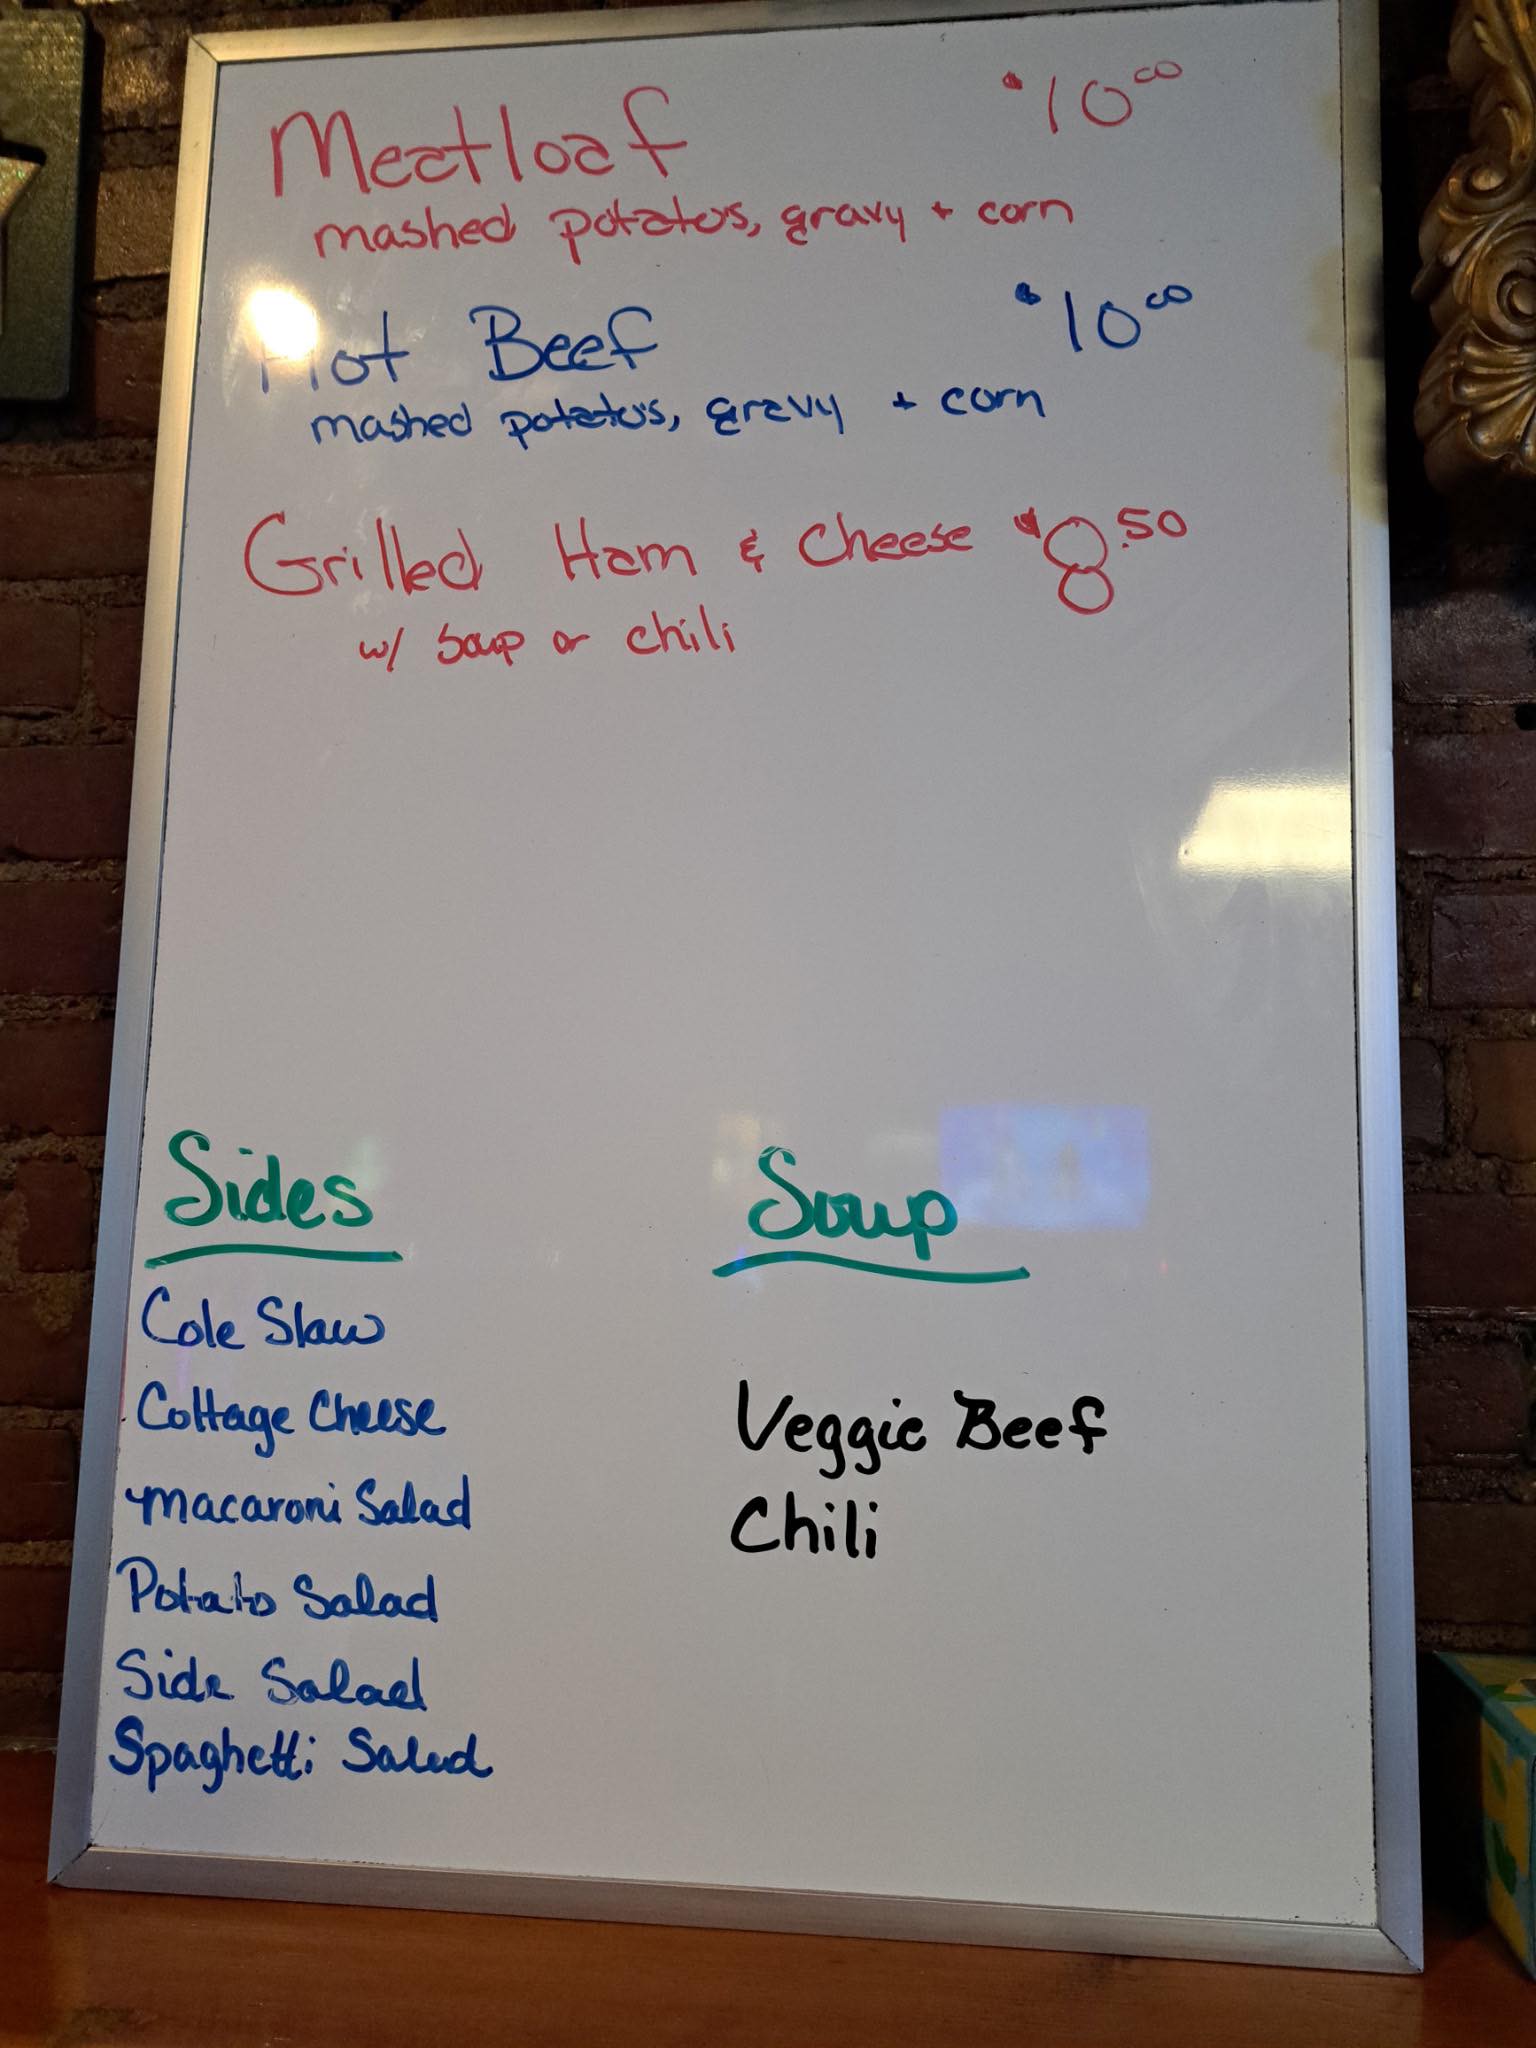 Meatloaf $10.00
mashed potatoes, gravy + corn
Hot Beef $10.00
mashed potatoes, gravy + corn
Grilled Ham & Cheese $8.50
w/ soup or chili
Sides
Cole Slaw
Cottage Cheese
Macaroni Salad
Potato Salad
Side Salad
Spaghetti Salad
Soup
Veggie Beef
Chili